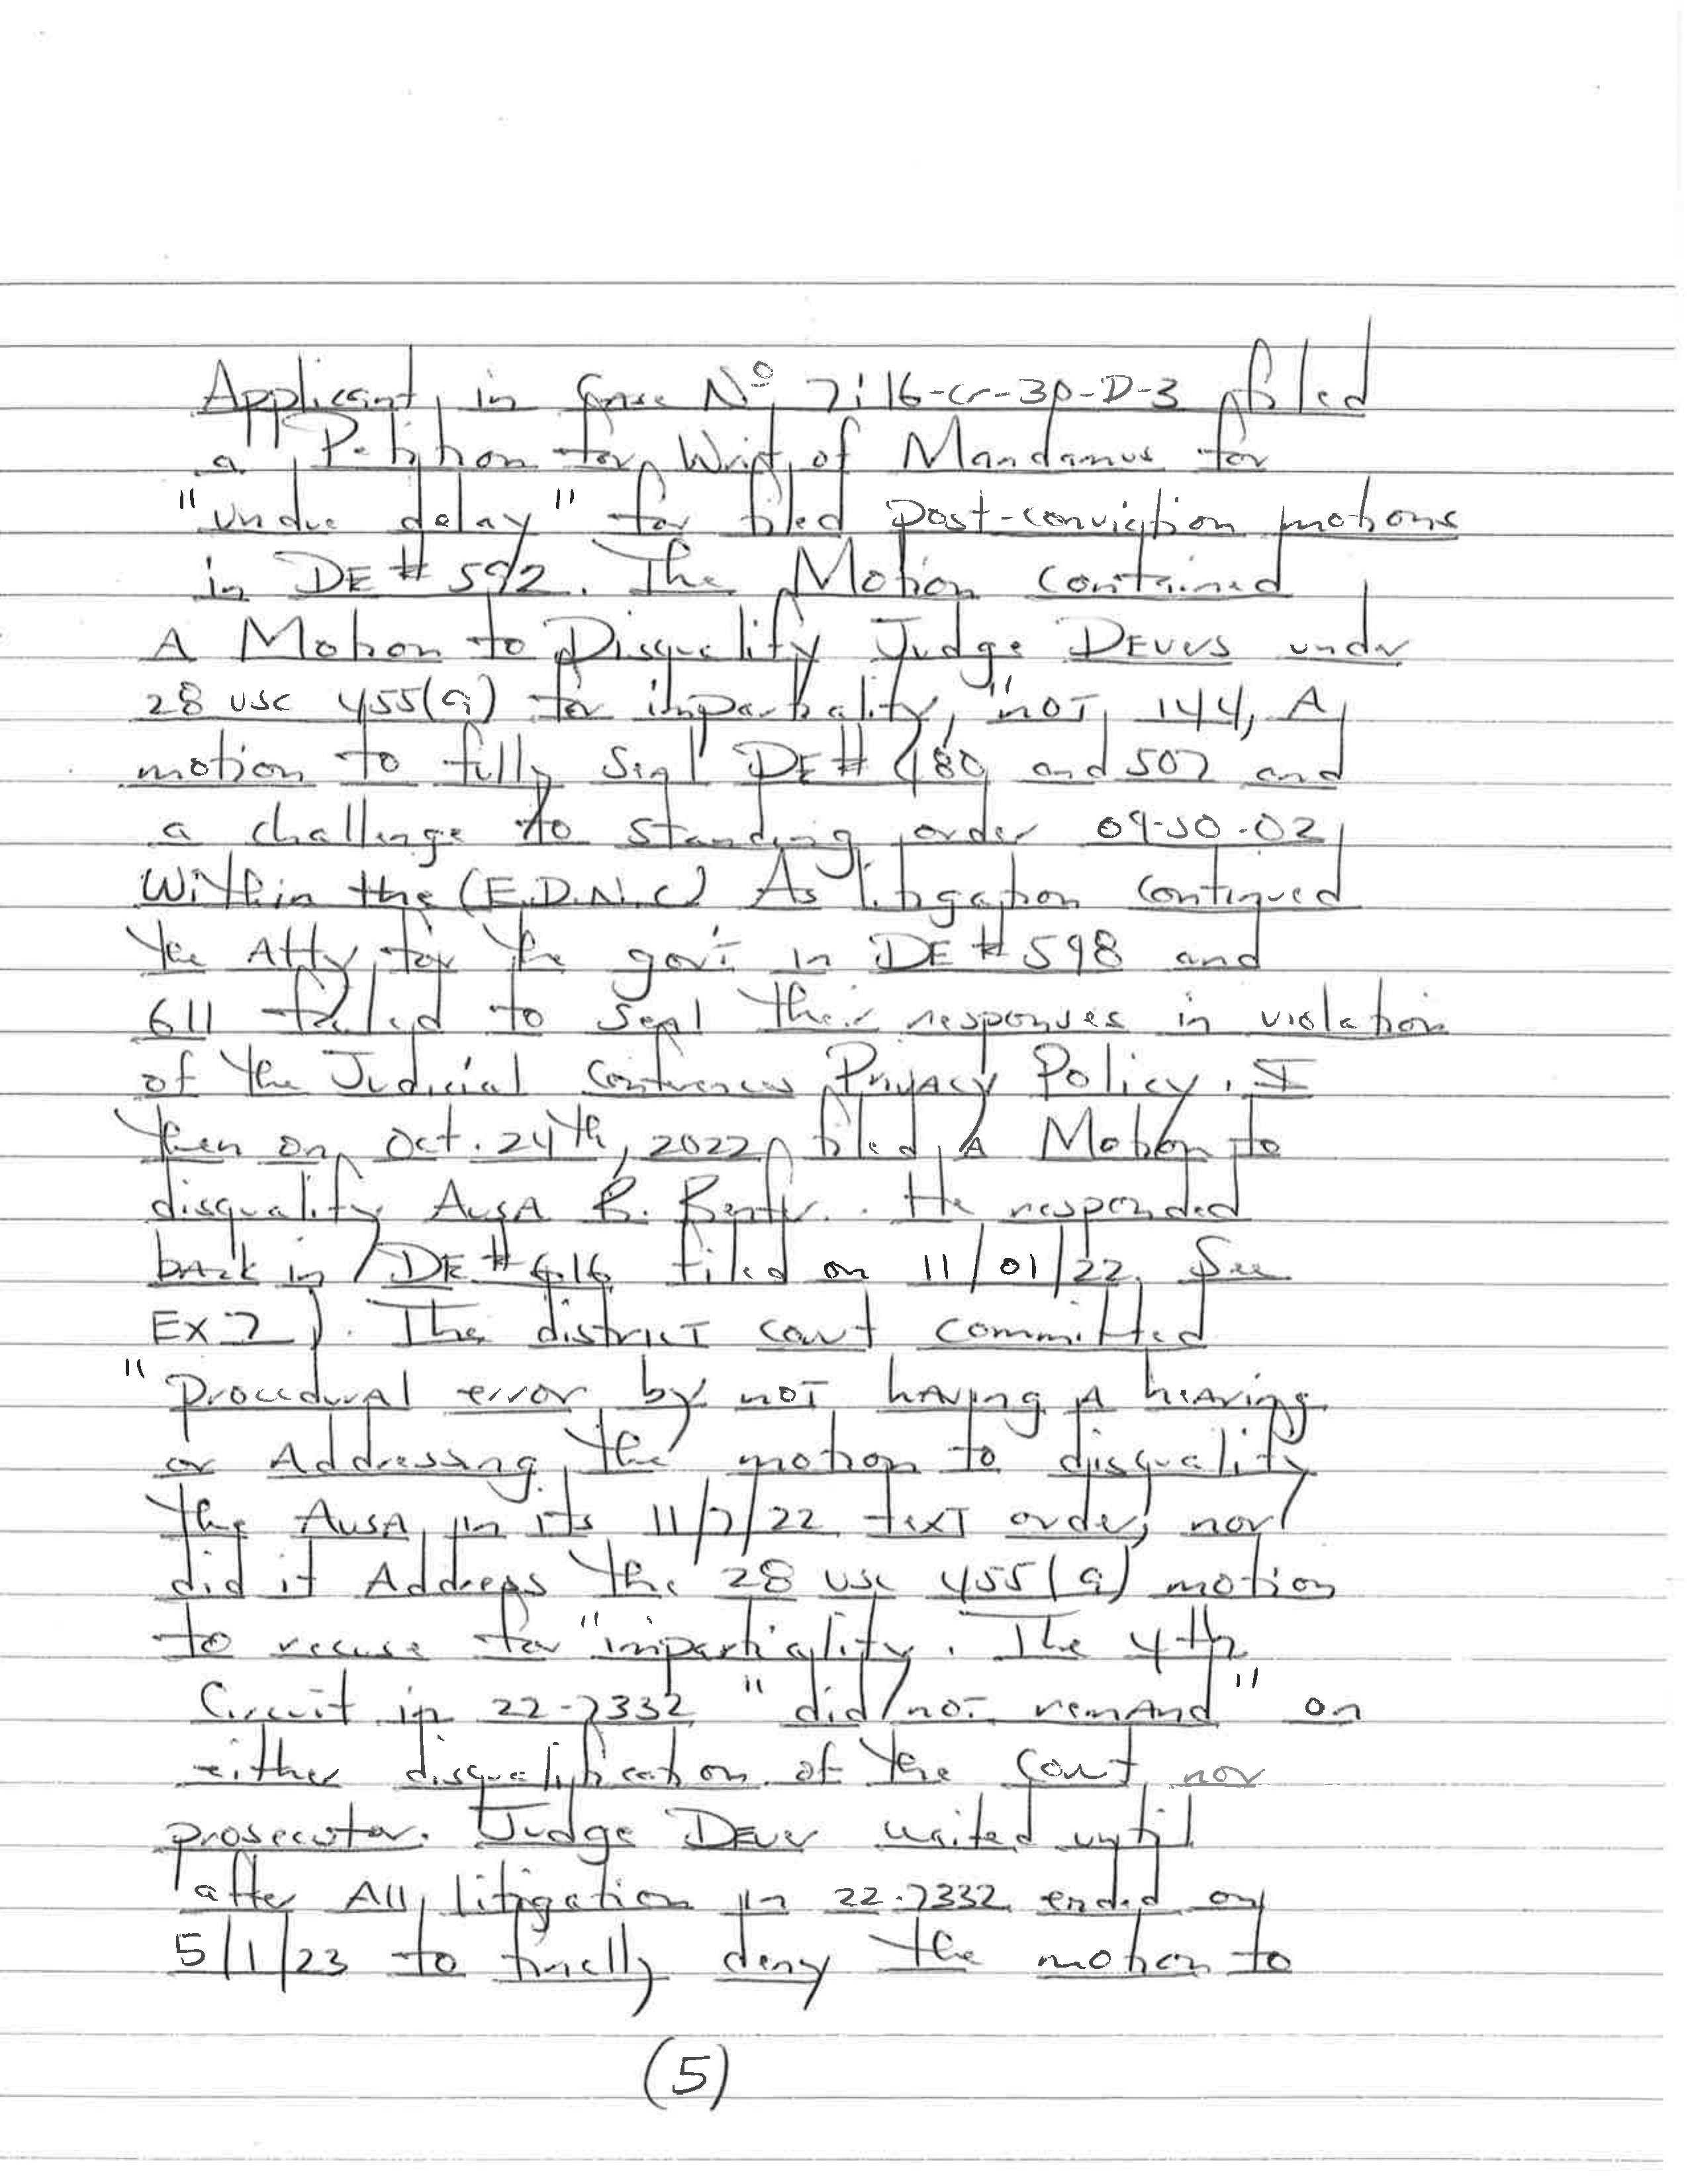 Applicant, in Case Nº 7:16-cr-30-D-3 filed
a Petition for Writ of Mandamus for
"undue delay" for filed post-conviction motions
in DE# 592. The Motion contained
A Motion to Disqualify Judge DEVERS under
28 USC 455(a) for impartiality, "NOT, 144, A
motion to fully seal DE# 480, and 507 and
a challenge to standing order 09-SO-02
Within the (E.D.N.C) As litigation continued
the Atty for the gov't in DE# 598 and
611 failed to seal their responses in violation
of the Judicial Conferences Privacy Policy. I
then on Oct. 24th, 2022 filed A Motion to
disqualify AUSA R. . He responded
back in DE# 616 filed on 11/01/22. See
Ex 2). The district court committed
"Procedural error by not having A hearing
or Addressing the motion to disqualify
the AUSA in its 11/7/22 text order, nor
did it Address the 28 USC 455(a) motion
to recuse for "impartiality. The 4th
Circuit in 22-7332 "did not remand" on
either disqualification of the Court, nor
prosecutor. Judge Dever waited until
after All litigation in 22-7332 ended on
5/1/23 to finally deny the motion to
(5)